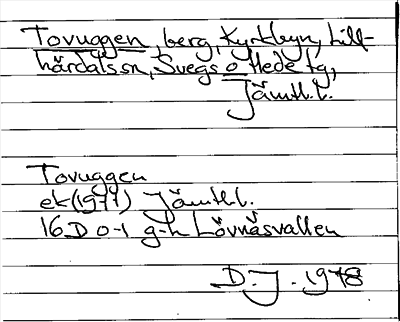 Tovuggen, berg, Kyrkbyn, Lill-
härdals sn, Svegs o Hede tg,
Jämtl.l.
Tovuggen
ek(1977) Jämtl.l.
16D 0-1 g-h Lövnäsvallen
D.J. 1978